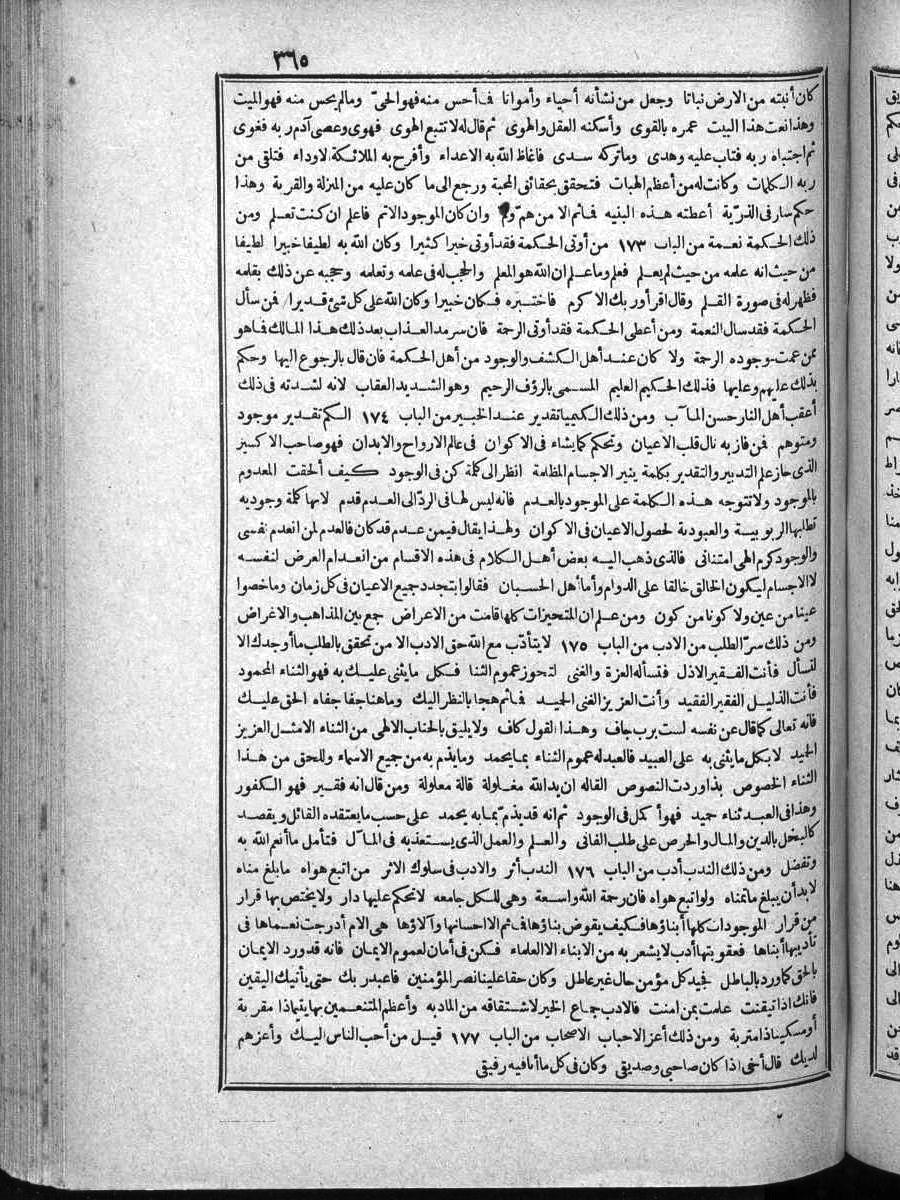 ٣٦٥
كان أنبته من الارض نباتا وجعل من نشأته أحياء وأمواتا فما أحس منه فهو الحىّ ومالم يحس منه فهو الميت
وهذا نعت هذا البيت عمره بالقوى وأسكنه العقل والهوى ثم قال له لا تتبع الهوى فهوى وعصى آدم ربه فغوى
ثم اجتباه ربه فتاب عليه وهدى وما تركه سدى فاغاظ الله به الاعداء وأفرح به الملائكة الاوداء فتلقى من
ربه الكلمات وكانت له من أعظم الهبات فتحقق بحقائق المحبة ورجع الى ما كان عليه من المنزلة والقربة وهذا
حكم سار فى الذرّية أعطته هذه البنيه فما ثم الا من همّ ولمّ وان كان الموجود الاتم فاعلم ان كنت تعلم ومن
ذلك الحكمة نعمة من الباب ١٧٣ من أوتى الحكمة فقد أوتى خيرا كثيرا وكان الله به لطيفا خبيرا لطيفا
من حيث انه علمه من حيث لم يعلم فعلم وما علم ان الله هو المعلم والحجب له فى علمه وتعلمه وحجبه عن ذلك بقلمه
فظهر له فى صورة القلم وقال اقرأ وربك الاكرم فاختبره فكان خبيرا وكان الله على كل شئ قديرا فمن سأل
الحكمة فقد سأل النعمة ومن أعطى الحكمة فقد أوتى الرحمة فان سرمد العذاب بعد ذلك هذا المالك فما هو
ممن عمت وجوده الرحمة ولا كان عند أهل الكشف والوجود من أهل الحكمة فان قال بالرجوع اليها وحكم
بذلك عليهم وعليها فذلك الحكيم العليم المسمى بالرؤف الرحيم وهو الشديد العقاب لانه لشدته فى ذلك
أعقب أهل النار حسن المآب ومن ذلك الكيميا تقدير عند الخبير من الباب ١٧٤ الكم تقدير موجود
ومتوهم فمن فاز به نال قلب الاعيان وتحكم كما يشاء فى الاكوان فى عالم الارواح والابدان فهو صاحب الاكسير
الذى حاز علم التدبير والتقدير بكلمة ينير الاجسام المظلمة انظر الى كلمة كن فى الوجود كيف ألحقت المعدوم
بالموجود ولا تتوجه هذه الكلمة على الموجود بالعدم فانه ليس لها فى الردّ الى العدم قدم لانها كلمة وجوديه
تطلبها الربوبية والعبودية لحصول الاعيان فى الاكوان ولهذا يقال فيمن عدم قد كان فالعدم لمن انعدم نفسى
والوجود كرم الهى امتنانى فالذى ذهب اليه بعض أهل الكلام فى هذه الاقسام من انعدام العرض لنفسه
لا الاجسام ليكون الخالق خالقا على الدوام وأما أهل الحسبان فقالوا بتجدد جميع الاعيان فى كل زمان وما خصوا
عينا من عين ولا كونا من كون ومن علم ان المتحيزات كلها قامت من الاعراض جمع بين المذاهب والاغراض
ومن ذلك سرّ الطلب من الادب من الباب ١٧٥ لا يتأدّب مع الله حق الادب الا من تحقق بالطلب ما أوجدك الا
لتسأل فأنت الفقير الاذل فتسأله العزة والغنى لتحوز عموم الثنا فكل ما يثنى عليك به فهو الثناء المحمود
فأنت الذليل الفقير الفقيد وأنت العزيز الغنى الحميد فما ثم هجا بالنظر اليك وما هنا جفا جفاه الحق عليك
فانه تعالى كما قال عن نفسه لست برب جاف وهذا القول كاف ولا يليق بالجناب الالهى من الثناء الامثل العزيز
الحميد لا بكل ما يثنى به على العبيد فالعبد له عموم الثناء بما يحمد وما يذم به من جميع الاسماء وللحق من هذا
الثناء الخصوص بذا وردت النصوص القاله ان يد الله مغلولة قالة معلولة ومن قال انه فقير فهو الكفور
وهذا فى العبد ثناء حميد فهو أكمل فى الوجود ثم انه قد يذمّ بما به يحمد على حسب ما يعتقده القائل ويقصد
كالبخل بالدين والمال والحرص على طلب الفانى والعلم والعمل الذى يستعذبه فى المآل فتأمل ما أنعم الله به
وتفضل ومن ذلك الندب أدب من الباب ١٧٦ الندب أثر والادب فى سلوك الاثر من اتبع هواه ما بلغ مناه
لا بد أن يبلغ ما تمناه ولو اتبع هواه فان رحمة الله واسعة وهى للكل جامعه لا تحكم عليها دار ولا يختص بها قرار
من قرار الموجودات كلها أبناؤها فكيف يقوض بناؤها فما ثم الا احسانها وآلاؤها هى الام أدرجت نعماها فى
تأديبها أبناها فعقوبتها أدب لا يشعر به من الابناء الا العلماء فكن فى أمان لعموم الايمان فانه قد ورد الايمان
بالحق كما ورد بالباطل فجيد كل مؤمن حال غير عاطل وكان حقا علينا نصر المؤمنين فاعبد ربك حتى يأتيك اليقين
فانك اذا تيقنت علمت بمن امنت فالادب جماع الخير لاشتقاقه من المادبه وأعظم المتنعمين بها يتيما ذا مقربة
أو مسكينا ذا متربة ومن ذلك أعز الاحباب الاصحاب من الباب ١٧٧ قيل من أحب الناس اليك وأعزهم
لديك قال أخى اذا كان صاحبى وصديقى وكان فى كل ما أنا فيه رفيقى